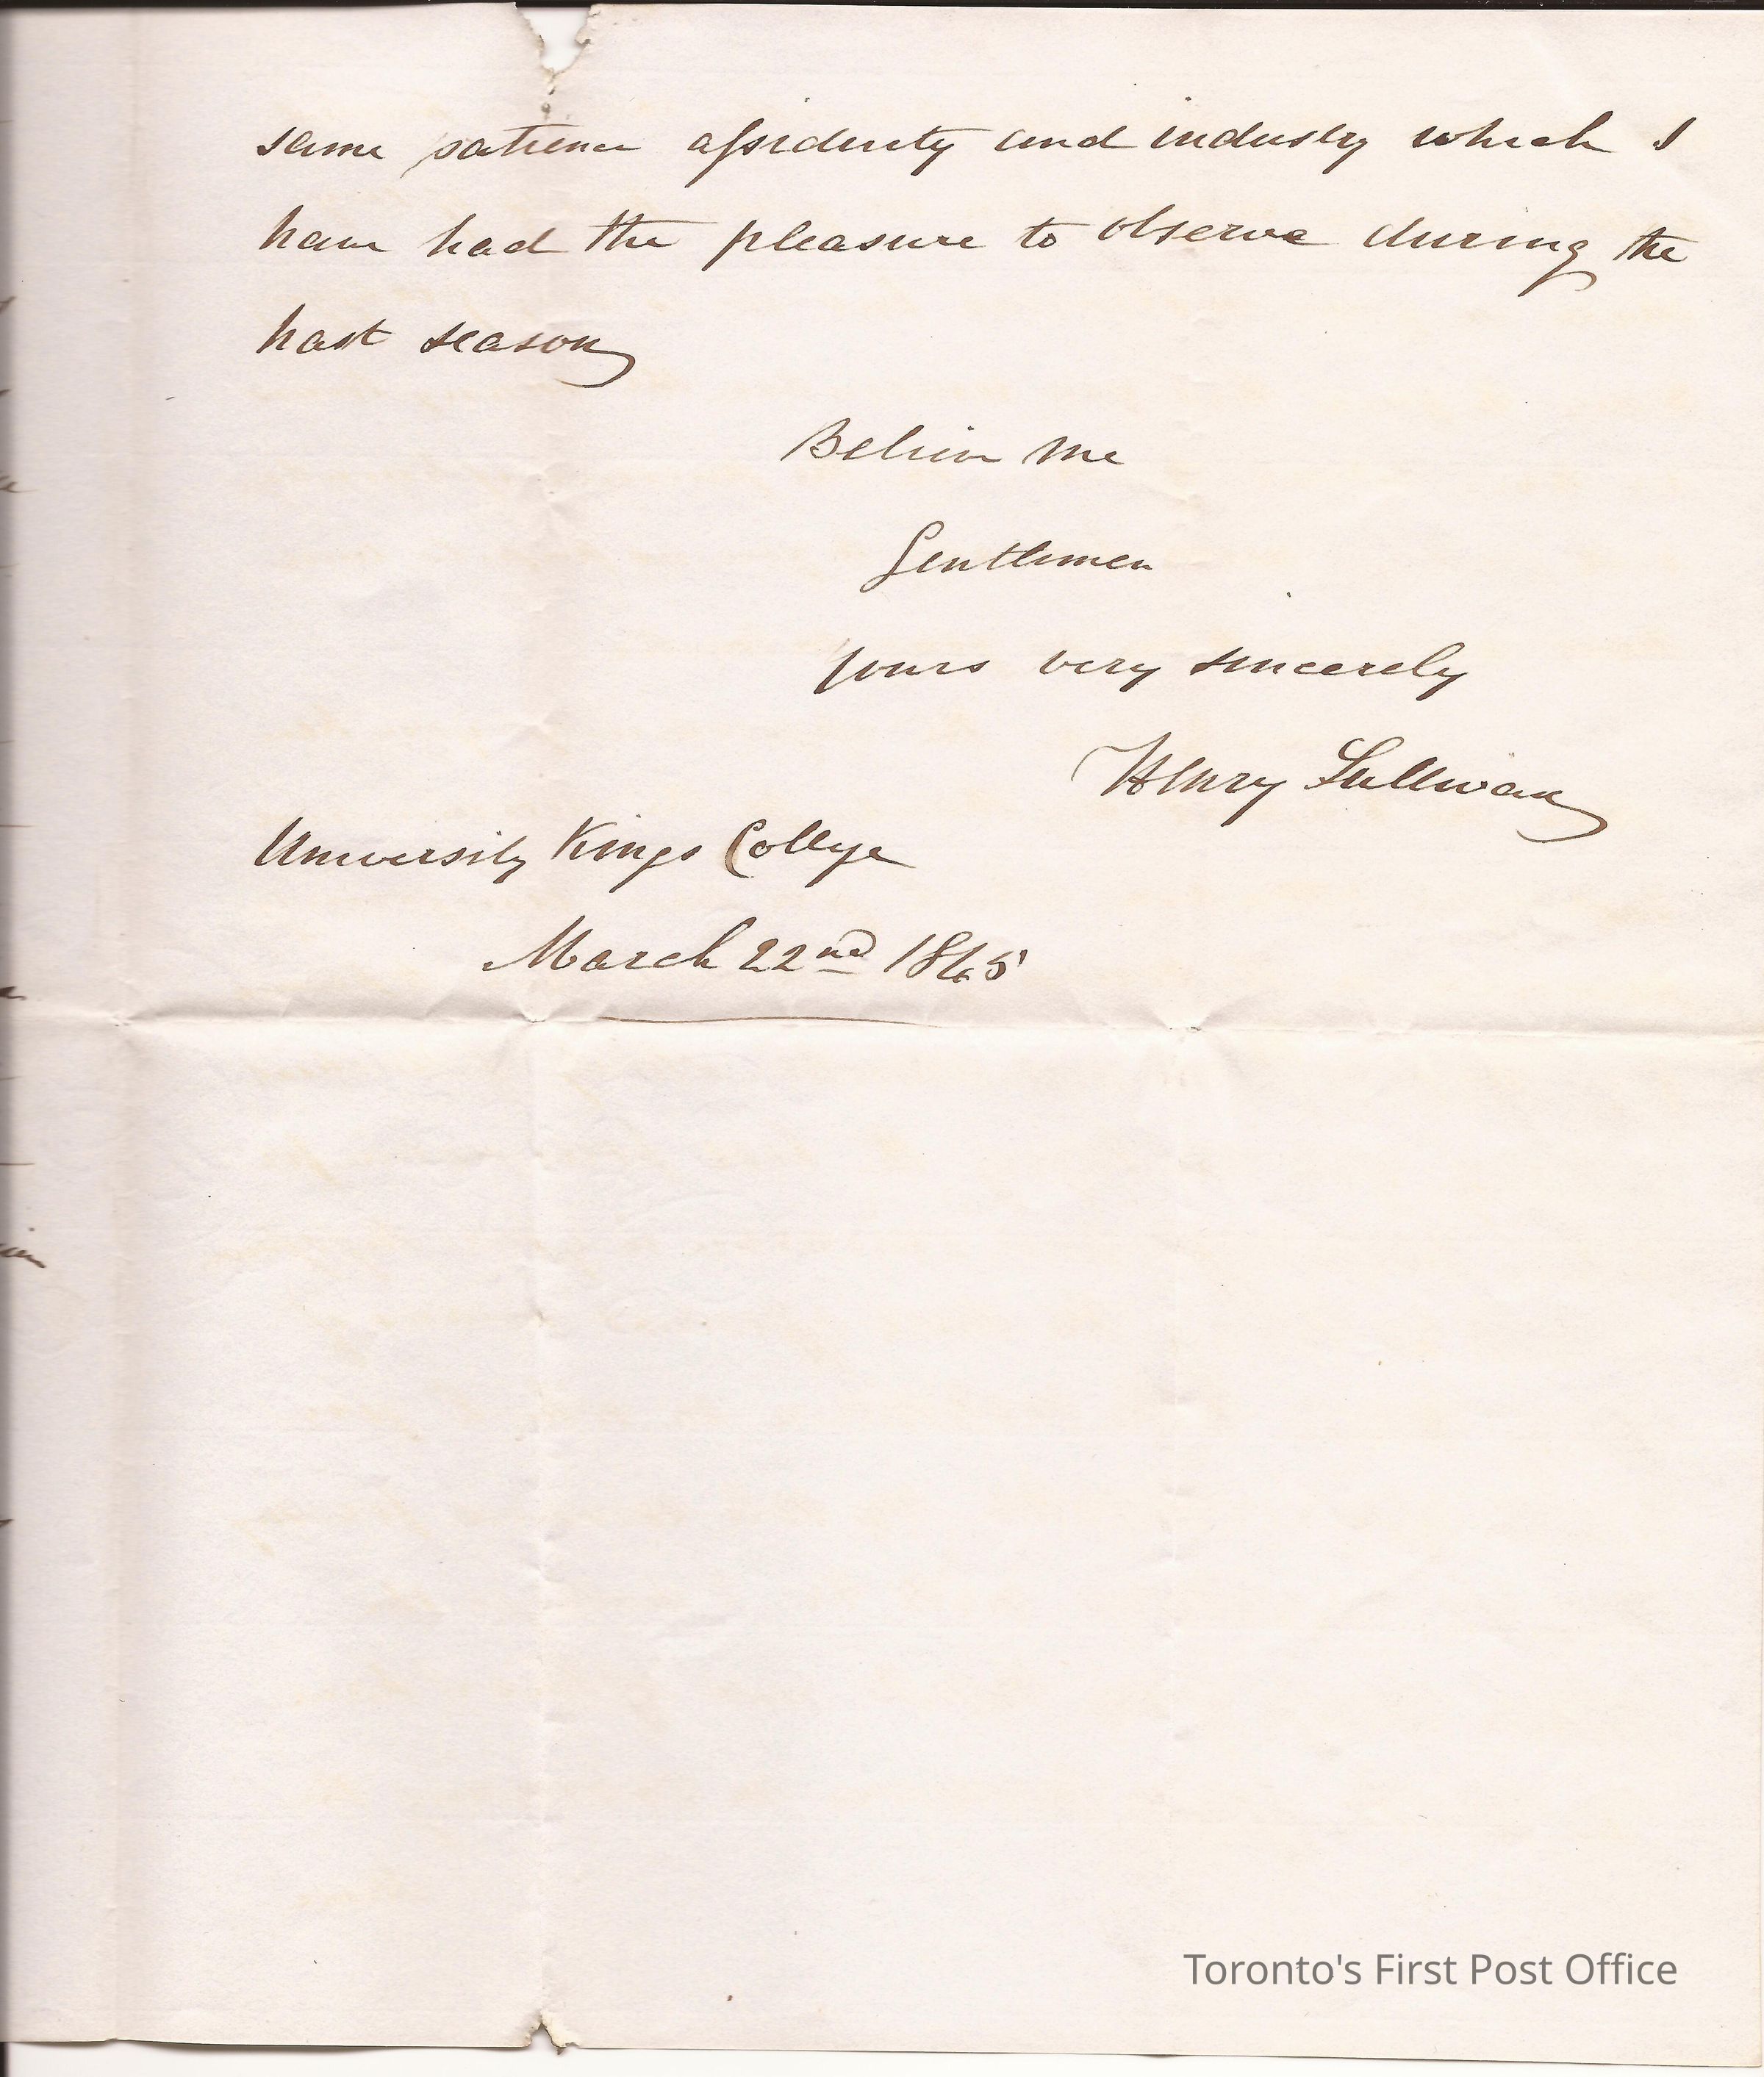 same patience assiduity and industry which I
have had the pleasure to observe during the
past season
Believe me
Gentlemen
yours very sincerely
Henry Sullivan
University Kings College
March 22nd 1845
Toronto's First Post Office